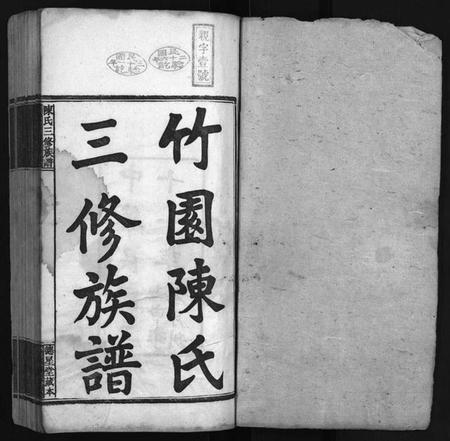 竹園陳氏
三修族譜
親字壹號
陳氏三修族譜